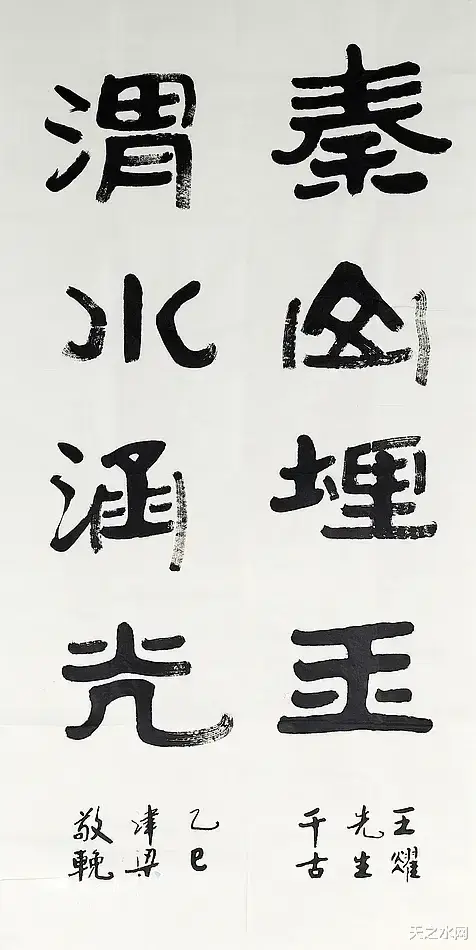 秦山埋玉
王燿
先生
千古
渭水涵光
乙巳
津梁
敬輓
天之水网